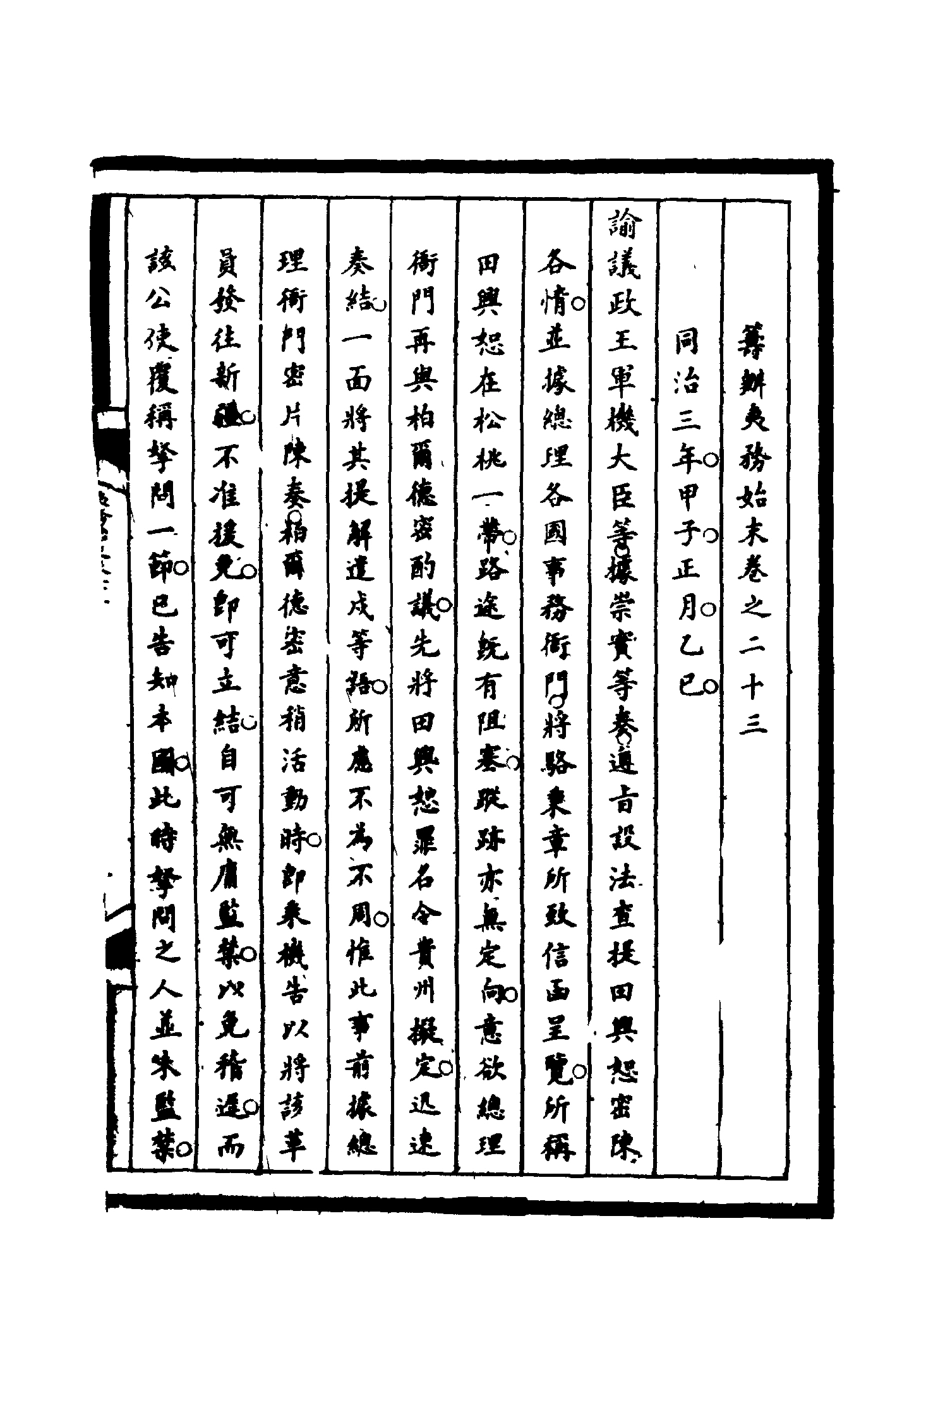 籌辦夷務始末卷之二十三
同治三年○甲子○正月○乙巳○
諭議政王軍機大臣等○據崇實等奏○遵旨設法查提田興恕密陳
各情○並據總理各國事務衙門○將駱秉章所致信函呈覽○所稱
田興恕在松桃一帶○路途既有阻塞○蹤跡亦無定向○意欲總理
衙門再與柏爾德密酌議○先將田興恕罪名令貴州擬定○迅速
奏結○一面將其提解遣戍等語○所慮不為不周○惟此事前據總
理衙門密片陳奏○柏爾德密意稍活動時○即乘機告以將該革
員發往新疆○不准援免○即可立結○自可無庸監禁○以免稽遲○而
該公使覆稱拏問一節○已告知本國○此時拏問之人並未監禁○